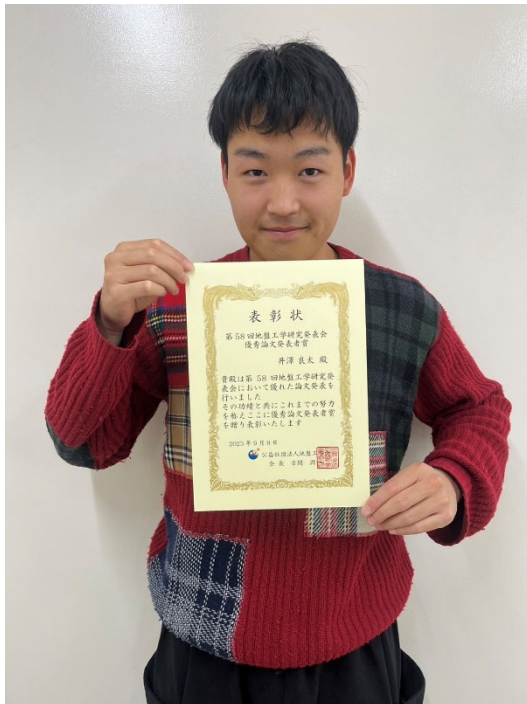 表彰状
第58回地盤工学研究発表会
優秀論文発表者賞
井澤良太 殿
貴殿は第 58 回地盤工学研究発
表会において優れた論文発表を
行いました
その功績と共にこれまでの努力
を称えここに優秀論文発表者賞
を贈り表彰いたします
2023年9月8日
公益社団法人地盤工
会長